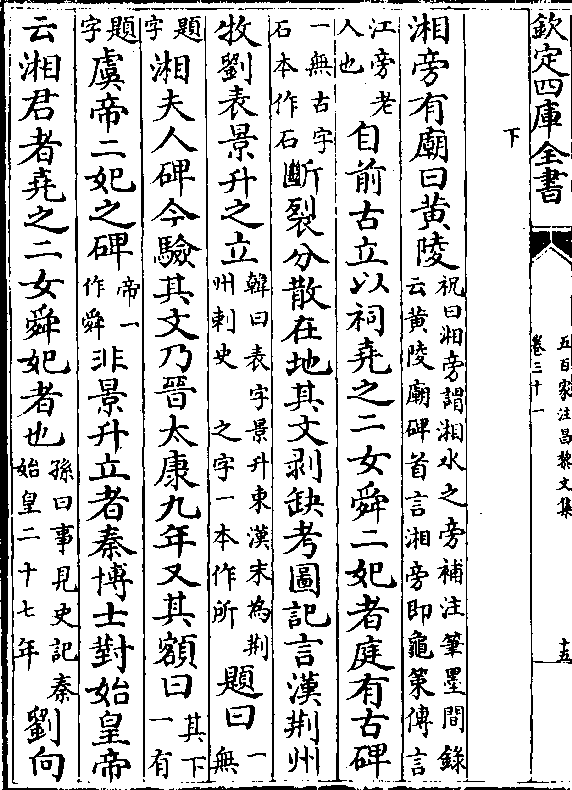 欽定四庫全書
五百家注昌黎文集
卷三十一
十五
下
湘旁有廟曰黄陵祝曰湘旁謂湘水之旁補注筆墨間錄云黄陵廟碑首言湘旁即龜策傳言
江旁老人也自前古立以祠堯之二女舜二妃者庭有古碑
一無古字石本作石斷裂分散在地其文剥缺考圖記言漢荆州
牧劉表景升之立韓曰表字景升東漢末為荆州刺史 之字一本作所題曰一無
題字湘夫人碑今驗其文乃晉太康九年又其額曰其下一有
題字虞帝二妃之碑帝一作舜非景升立者秦博士對始皇帝
云湘君者堯之二女舜妃者也孫曰事見史記秦始皇二十七年劉向